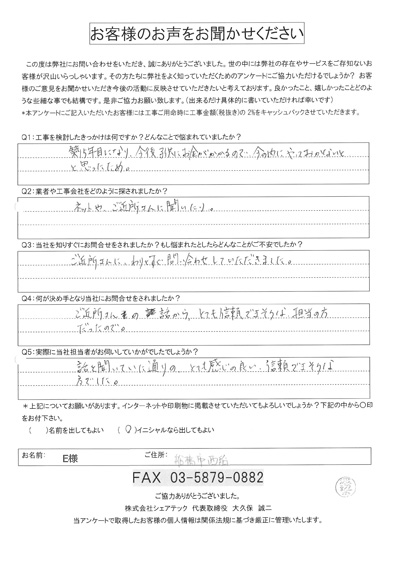 お客様のお声をお聞かせください
この度は弊社にお問い合わせをいただき、誠にありがとうございました。世の中には弊社の存在やサービスをご存知ないお
客様が沢山いらっしゃいます。その方たちに弊社をよく知っていただくためのアンケートにご協力いただけるでしょうか? お客
様のご意見をお聞かせいただき今後の活動に反映させていきたいと考えております。良かったこと、嬉しかったことどのよ
うな些細な事でも結構です。是非ご協力お願い致します。(出来るだけ具体的に書いていただければ幸いです)
*本アンケートにご記入いただいたお客様には工事ご用命時に工事金額(税抜き)の 2%をキャッシュバックさせていただきます。
Q1:工事を検討したきっかけは何ですか?どんなことで悩まれていましたか?
築15年目になり、今後 にお金がかかるので、今の内にやっておかないと
と思ったため。
Q2:業者や工事会社をどのように探されましたか?
ネットや、ご近所さんに聞いたり。
Q3:当社を知りすぐにお問合せをされましたか?もし悩まれたとしたらどんなことがご不安でしたか?
ご近所さんに、 すぐ問い合わせしていただきました。
Q4:何が決め手となり当社にお問合せをされましたか?
ご近所さんの 話から、とても信頼できそうな担当の方
だったので。
Q5:実際に当社担当者がお伺いしていかがでしたでしょうか?
話を聞いていた通りの、とても感じの良い、信頼できそうな
方でした。
*上記についてお願いがあります。インターネットや印刷物に掲載させていただいてもよろしいでしょうか?下記の中から〇印
をお付下さい。
( )名前を出してもよい (〇)イニシャルなら出してもよい
お名前: E様 ご住所:
FAX 03-5879-0882
ご協力ありがとうございました。
株式会社シェアテック 代表取締役 大久保 誠二
当アンケートで取得したお客様の個人情報は関係法規に基づき厳正に管理いたします。